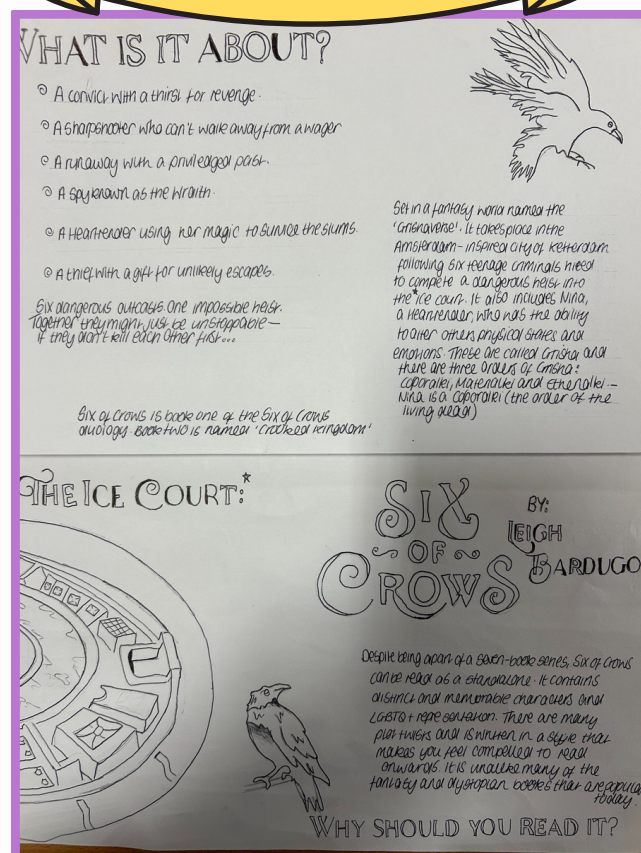 WHAT IS IT ABOUT?
A convict with a thirst for revenge.
A sharpshooter who can't walk away from a wager
A runaway with a priviledged past.
A spy known as the Wraith.
A Heartrender using her magic to survive the slums.
A thief with a gift for unlikely escapes.
Six dangerous outcasts. One impossible heist.
Together they might just be unstoppable—
if they don't kill each other first...
Six of Crows is book one of the Six of Crows
duology. Book two is named 'Crooked Kingdom'
Set in a fantasy world named the
'Grishaverse'. It takes place in the
Amsterdam-inspired city of Ketterdam
following six teenage criminals hired
to complete a dangerous heist into
the *ice court. It also includes Nina,
a Heartrender, who has the ability
to alter others physical states and
emotions. These are called Grisha and
there are three orders of Grisha:
Coporalki, Materialki and Etherialki —
Nina is a Coporalki (the order of the
living dead)
THE ICE COURT:*
SIX
OF
CROWS
BY:
LEIGH
BARDUGO
Despite being apart of a seven-book series, Six of Crows
can be read as a standalone. It contains
distinct and memorable characters and
LGBTQ+ representation. There are many
plot twists and is written in a style that
makes you feel compelled to read
onwards. It is unalike many of the
fantasy and dystopian books that are popular
today.
WHY SHOULD YOU READ IT?